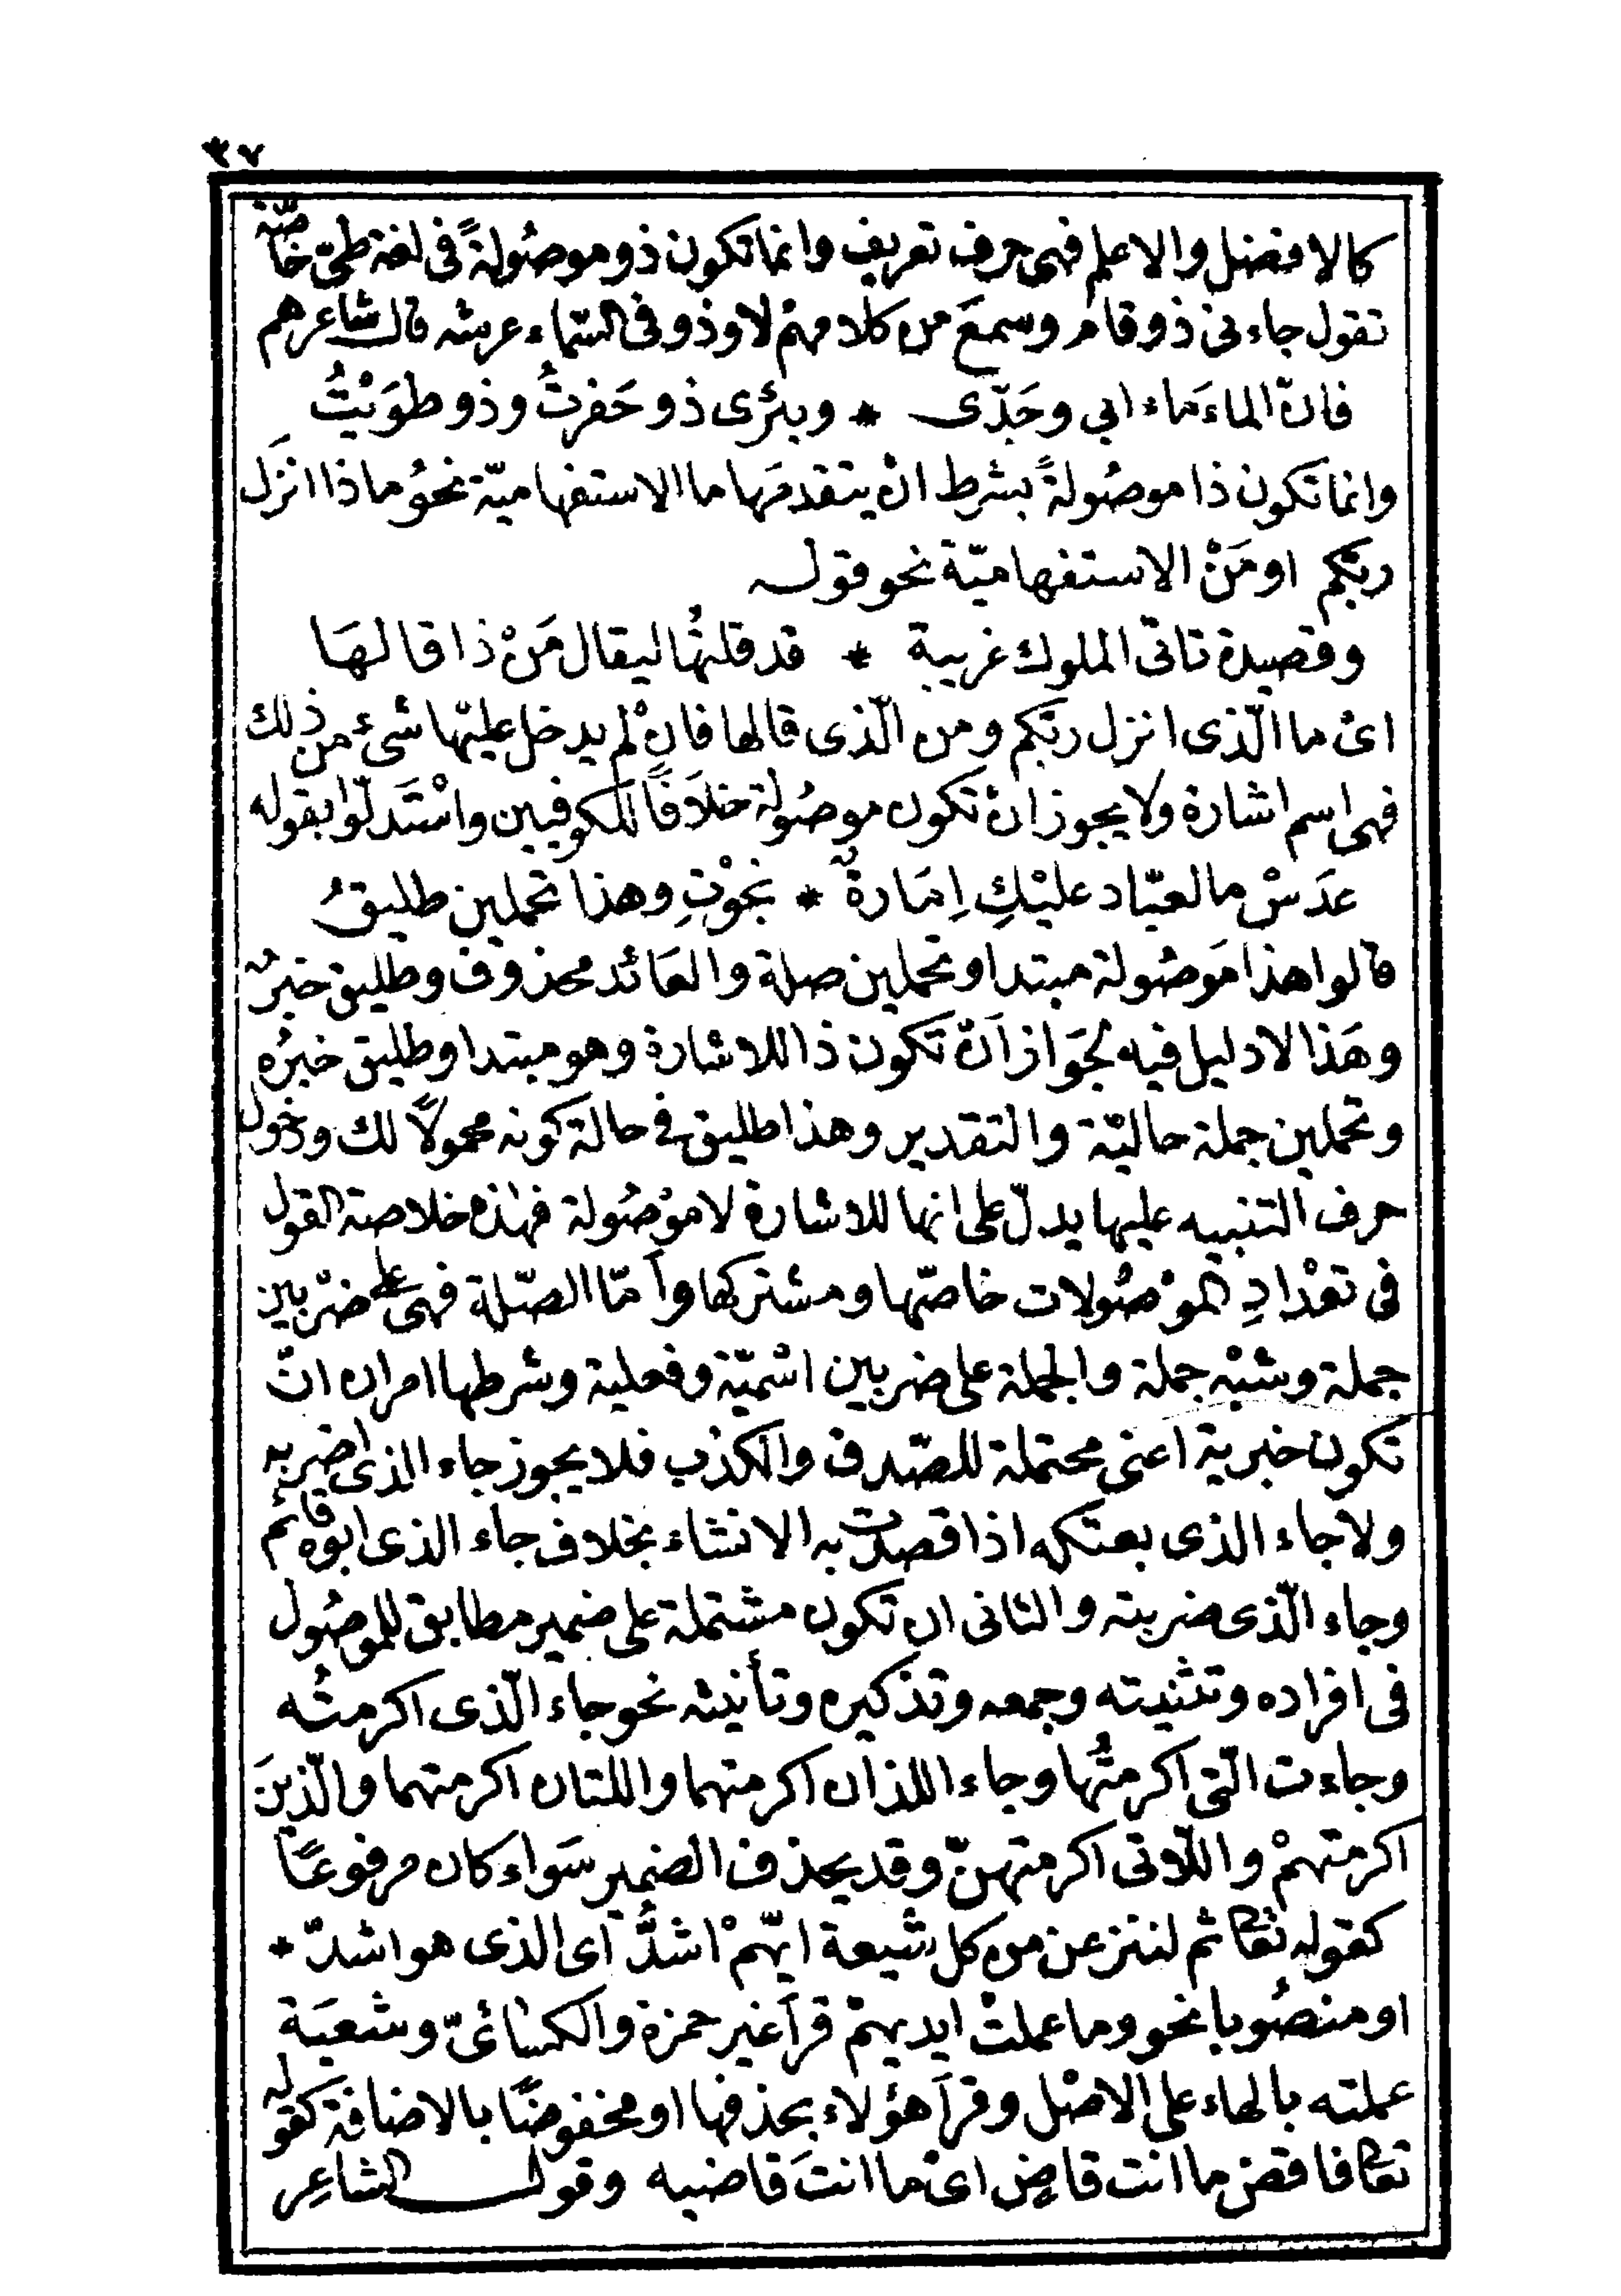 ٣٧
كالافضل والاعلم فهى حرف تعريف وانما تكون ذو موصُولةً فى لغة طىّ خاصّة
تقول جاءنى ذو قام وسمعَ من كلامهمْ لا وذو فى السّماء عرشه قال شاعرهم
فانّ الماءَ ماء ابي وجَدّى * وبئرى ذو حَفرتُ وذو طوَيْتُ
وانما تكون ذا موصُولةً بشرط انْ يتقدمَها ما الاستفهاميّة نحوُ ماذا انزَل
ربّكم او مَنْ الاستفهاميّة نحو قوله
وقصيدة تاتى الملوك غريبة * قد قلتُها ليقال مَنْ ذا قالهَا
اىْ ما الّذى انزل ربّكم ومن الّذى قالها فانْ لم يدخل عليْها شىء من ذلك
فهى اسم اشارة ولا يجوز انْ تكون موصُولة خلاَفاً للكوفيين واسْتَدلّوا بقوله
عدَسْ ما لعبّاد عليْكِ اِمَارةٌ * نجوْتِ وهذا تحملين طليقُ
قالوا هذا مَوصُولة مبتدا وتحملين صلة والعَائد محذوف وطليق خبرٌ
وهَذا لا دليل فيه لجَواز اَنْ تَكون ذا للاشارة وهو مبتدا وطليق خبرُه
وتحملين جملة حاليّة والتقدير وهذا طليق فى حالة كونه محمولاً لك ودخول
حرف التنبيه عليها يدلّ على انها للاشارة لا موْصُولة فهذه خلاصة القول
فى تعْدادِ الموْصُولات خاصّها ومشتركها واَمّا الصّلة فهى على ضرْبين
جملة وشبْه جملة والجملة على ضربين اسْميّة وفعلية وشرطها امران انْ
تكون خبرية اعنى محتملة للصّدق والكذب فلا يجوز جاء الذى اضربه
ولا جاء الذى بعتكه اذا قصدت به الانشاء بخلاف جاء الذى ابوه قائم
وجاء الّذى ضربته والثانى ان تكون مشتملة على ضمير مطابق للموصُول
فى افراده وتثنيته وجمعه وتذكيره وتأنيثه نحو جاء الّذى اكرمتُه
وجاءت الّتى اكرمتُها وجاء اللذان اكرمتهما واللتان اكرمتهما والّذينَ
اكرمتهمْ واللّاتى اكرمتهنّ وقد يحذف الضمير سَواء كان مرفوعًا
كقوله تعالى ثم لننزعن من كل شيعة ايّهمْ اشدُّ اى الذى هو اشدّ *
او منصُوبا نحو وما عملتْ ايديهمْ قرأ غير حمزة والكسَائىّ وشعبَة
عملته بالهاء على الاصْل وقرأ هؤلاء بحذفها او مخفوضًا بالاضافة كقوله
تعالى فاقض ما انت قاضٍ اىْ ما انتَ قاضيه وقول الشاعِر